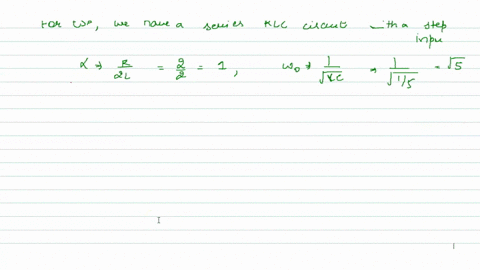 For wp, we have a series RLC circuit with a step
input
α → R/2L = 2/2 = 1, ω0 → 1/√LC → 1/√1/5 = √5